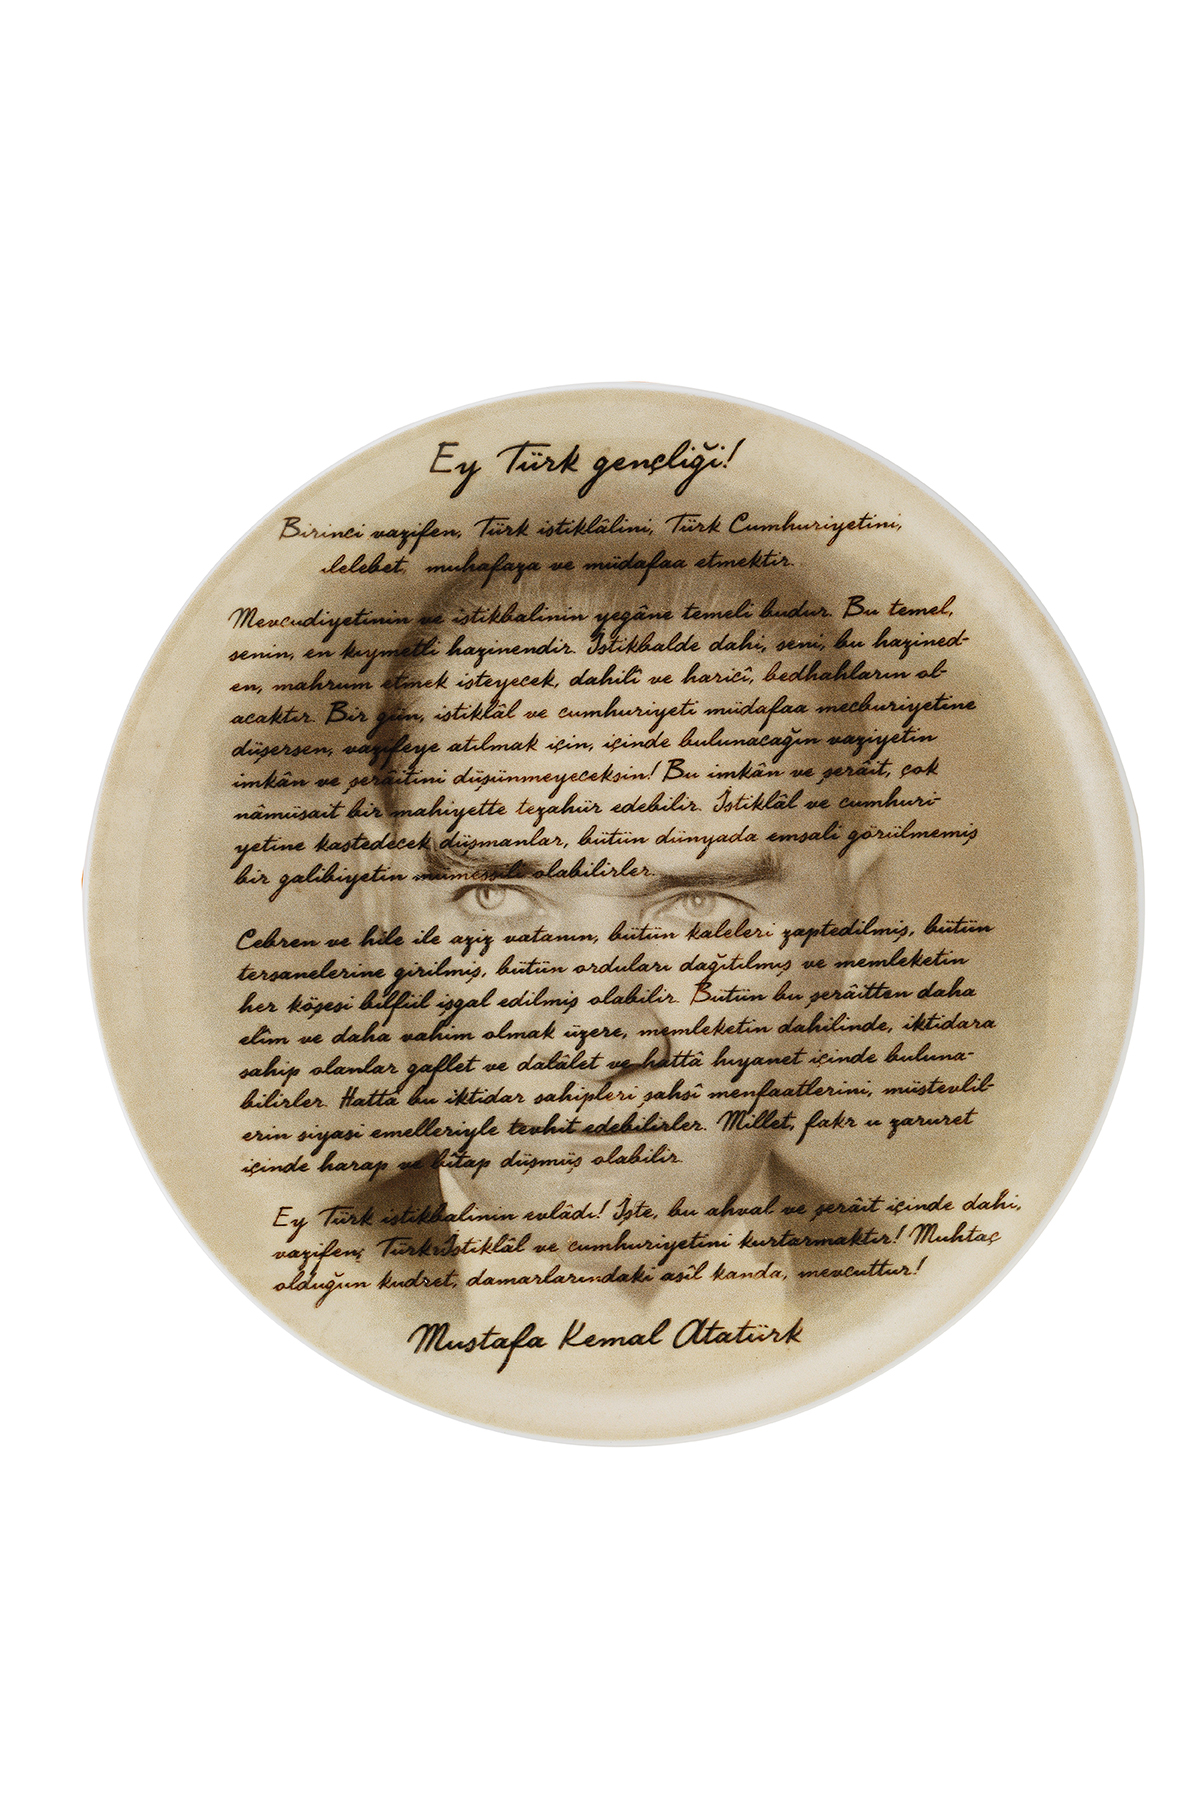 Ey Türk gençliği!
Birinci vazifen, Türk istiklâlini, Türk Cumhuriyetini,
ilelebet, muhafaza ve müdafaa etmektir.
Mevcudiyetinin ve istikbalinin yegâne temeli budur. Bu temel,
senin, en kıymetli hazinendir. İstikbalde dahi, seni, bu hazined-
en, mahrum etmek isteyecek, dahilî ve haricî, bedhahların ol-
acaktır. Bir gün, istiklâl ve cumhuriyeti müdafaa mecburiyetine
düşersen, vazifeye atılmak için, içinde bulunacağın vaziyetin
imkân ve şerâitini düşünmeyeceksin! Bu imkân ve şerâit, çok
nâmüsait bir mahiyette tezahür edebilir. İstiklâl ve cumhuri-
yetine kastedecek düşmanlar, bütün dünyada emsali görülmemiş
bir galibiyetin mümessili olabilirler.
Cebren ve hile ile aziz vatanın, bütün kaleleri zaptedilmiş, bütün
tersanelerine girilmiş, bütün orduları dağıtılmış ve memleketin
her köşesi bilfiil işgal edilmiş olabilir. Bütün bu şerâitten daha
elîm ve daha vahim olmak üzere, memleketin dahilinde, iktidara
sahip olanlar gaflet ve dalâlet ve hattâ hıyanet içinde buluna-
bilirler. Hattâ bu iktidar sahipleri şahsî menfaatlerini, müstevlil-
erin siyasi emelleriyle tevhit edebilirler. Millet, fakr u zaruret
içinde harap ve bîtap düşmüş olabilir.
Ey Türk istikbalinin evlâdı! İşte, bu ahval ve şerâit içinde dahi,
vazifen; Türk İstiklâl ve cumhuriyetini kurtarmaktır! Muhtaç
olduğun kudret, damarlarındaki asîl kanda, mevcuttur!
Mustafa Kemal Atatürk